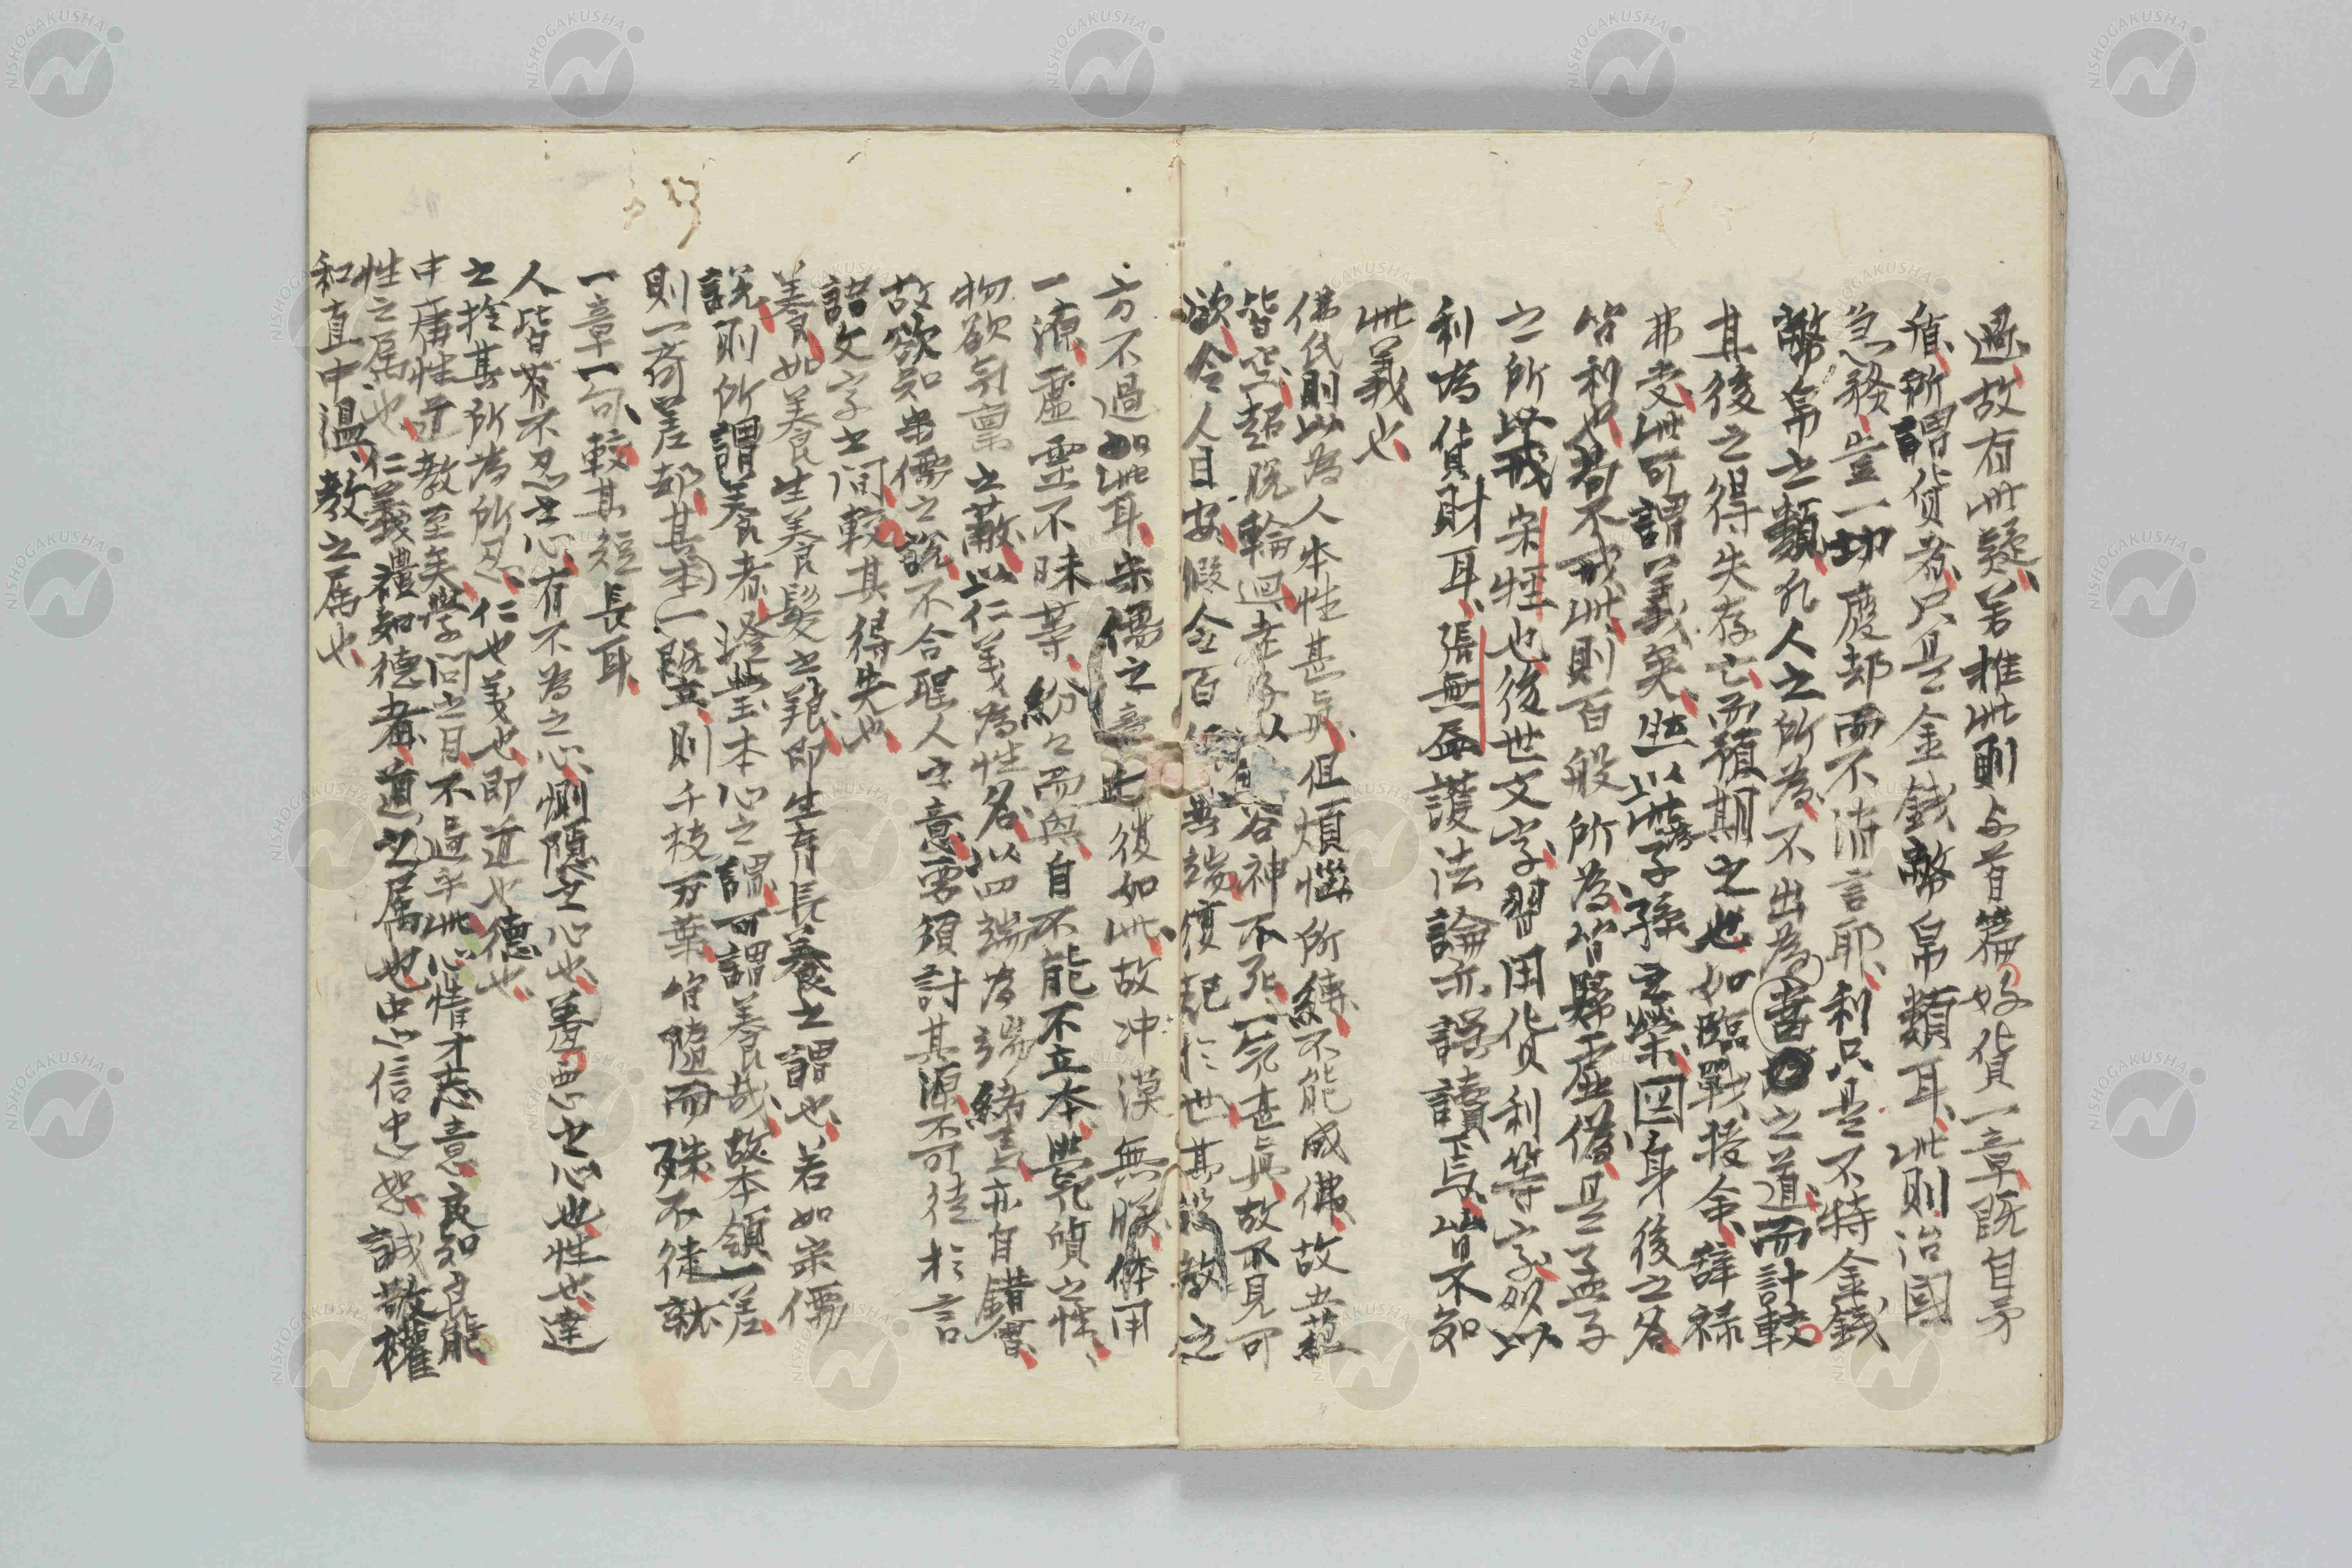 過故有此疑若推此則与首篇好貨一章既自矛
所謂貨者只是金錢幣帛類耳此則治國
急務豈一切廢却而不消言耶利只是不特金錢
幣帛之類凡人之所為不出為善之道而計較
其後之得失存亡而預期之也如臨戰授命辞禄
弗受此可謂義矣然以此為子孫之榮図身後之名
皆利也若不戒此則百般所為皆歸虚偽是孟子
之所以戒宋牼也後世文字習用貨利等字故以
利為貨財耳張無盡護法論亦誤讀焉皆不知
此義也
佛氏則以為人本性甚真但煩惱所縛不能成佛故五蘊
皆空超脱輪迴老子以為谷神不死一元甚真故不見可
欲令人目安假令百無端復起於世其設教之
方不過如此耳宋儒之意此後如此故冲漠無朕体用
一源虚霊不昧等紛々而興自不能不立本然気質之性
物欲気稟之蔽以仁義為性名以四端為端緒其言亦自錯雑
故欲知宋儒之説不合聖人之意要須討其源不可徒於言
語文字之間較其得失也
養如養生養髪之類即生育長養之謂也若如宋儒
説則所謂養者瑩本心之謂可謂養哉故本領一差
則一齊差却其本一既立則千枝万葉皆随而殊不徒就
一章一句較其短長耳
人皆有不忍之心有不為之心惻隠之心也羞悪之心也性也達
之於其所為所忍仁也義也即道也徳也
中庸性道教至矣学問之目不過乎此心情才志意良知良能
性之属也仁義禮智徳者道之属也中忠信忠恕誠敬權
和直中温教之属也